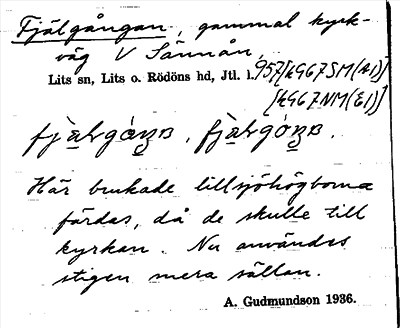 Fjälgången, gammal kyrk-
väg V Sännån,
Lits sn, Lits o. Rödöns hd, Jtl. l. 957[2967SM(A1)]
[2967NM(E1)]
Här brukade lillsjöhögborna
färdas, då de skulle till
kyrkan. Nu användes
stigen mera sällan.
A. Gudmundson 1936.